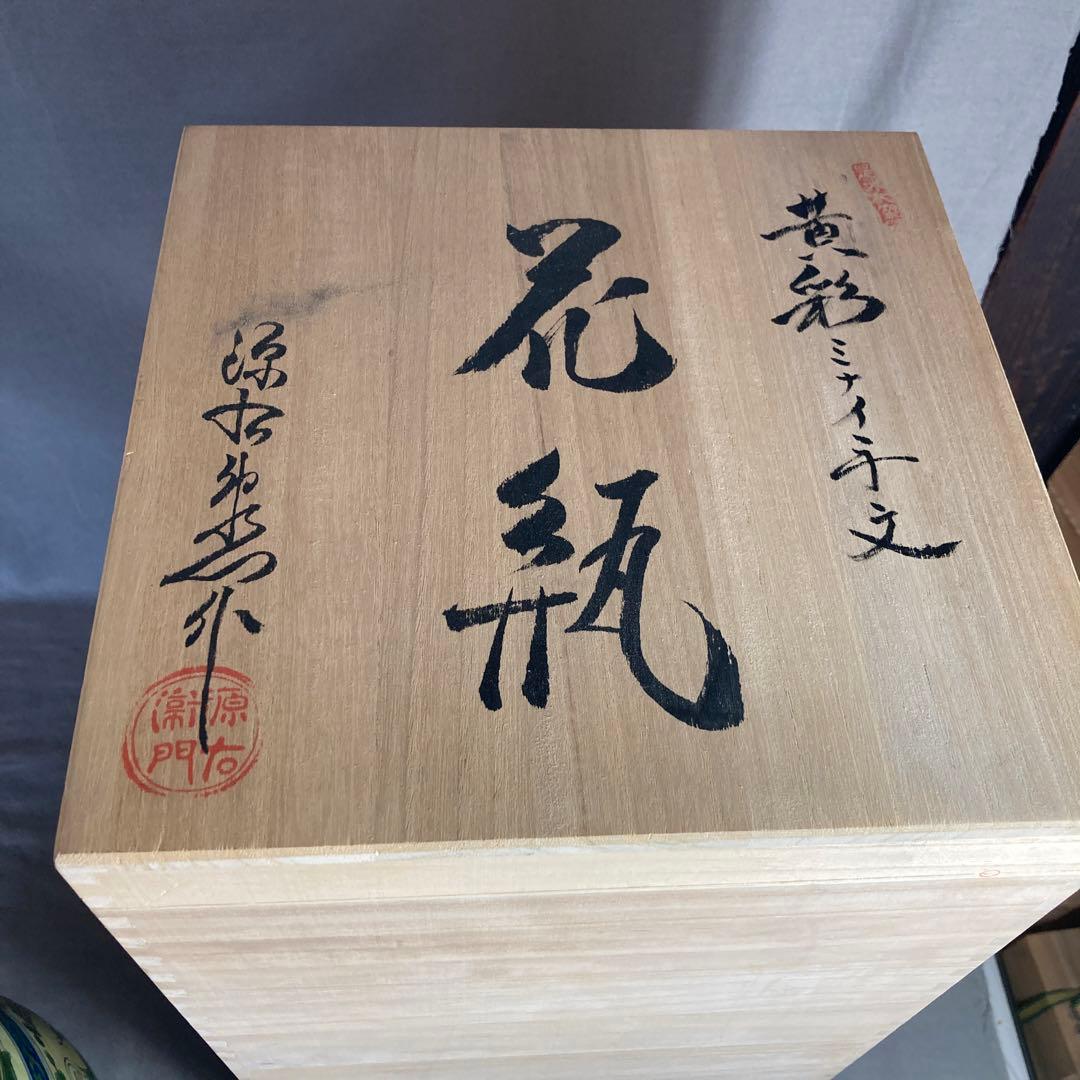 黄彩ミナイ手文
花瓶
源右衛門作
源右衛門